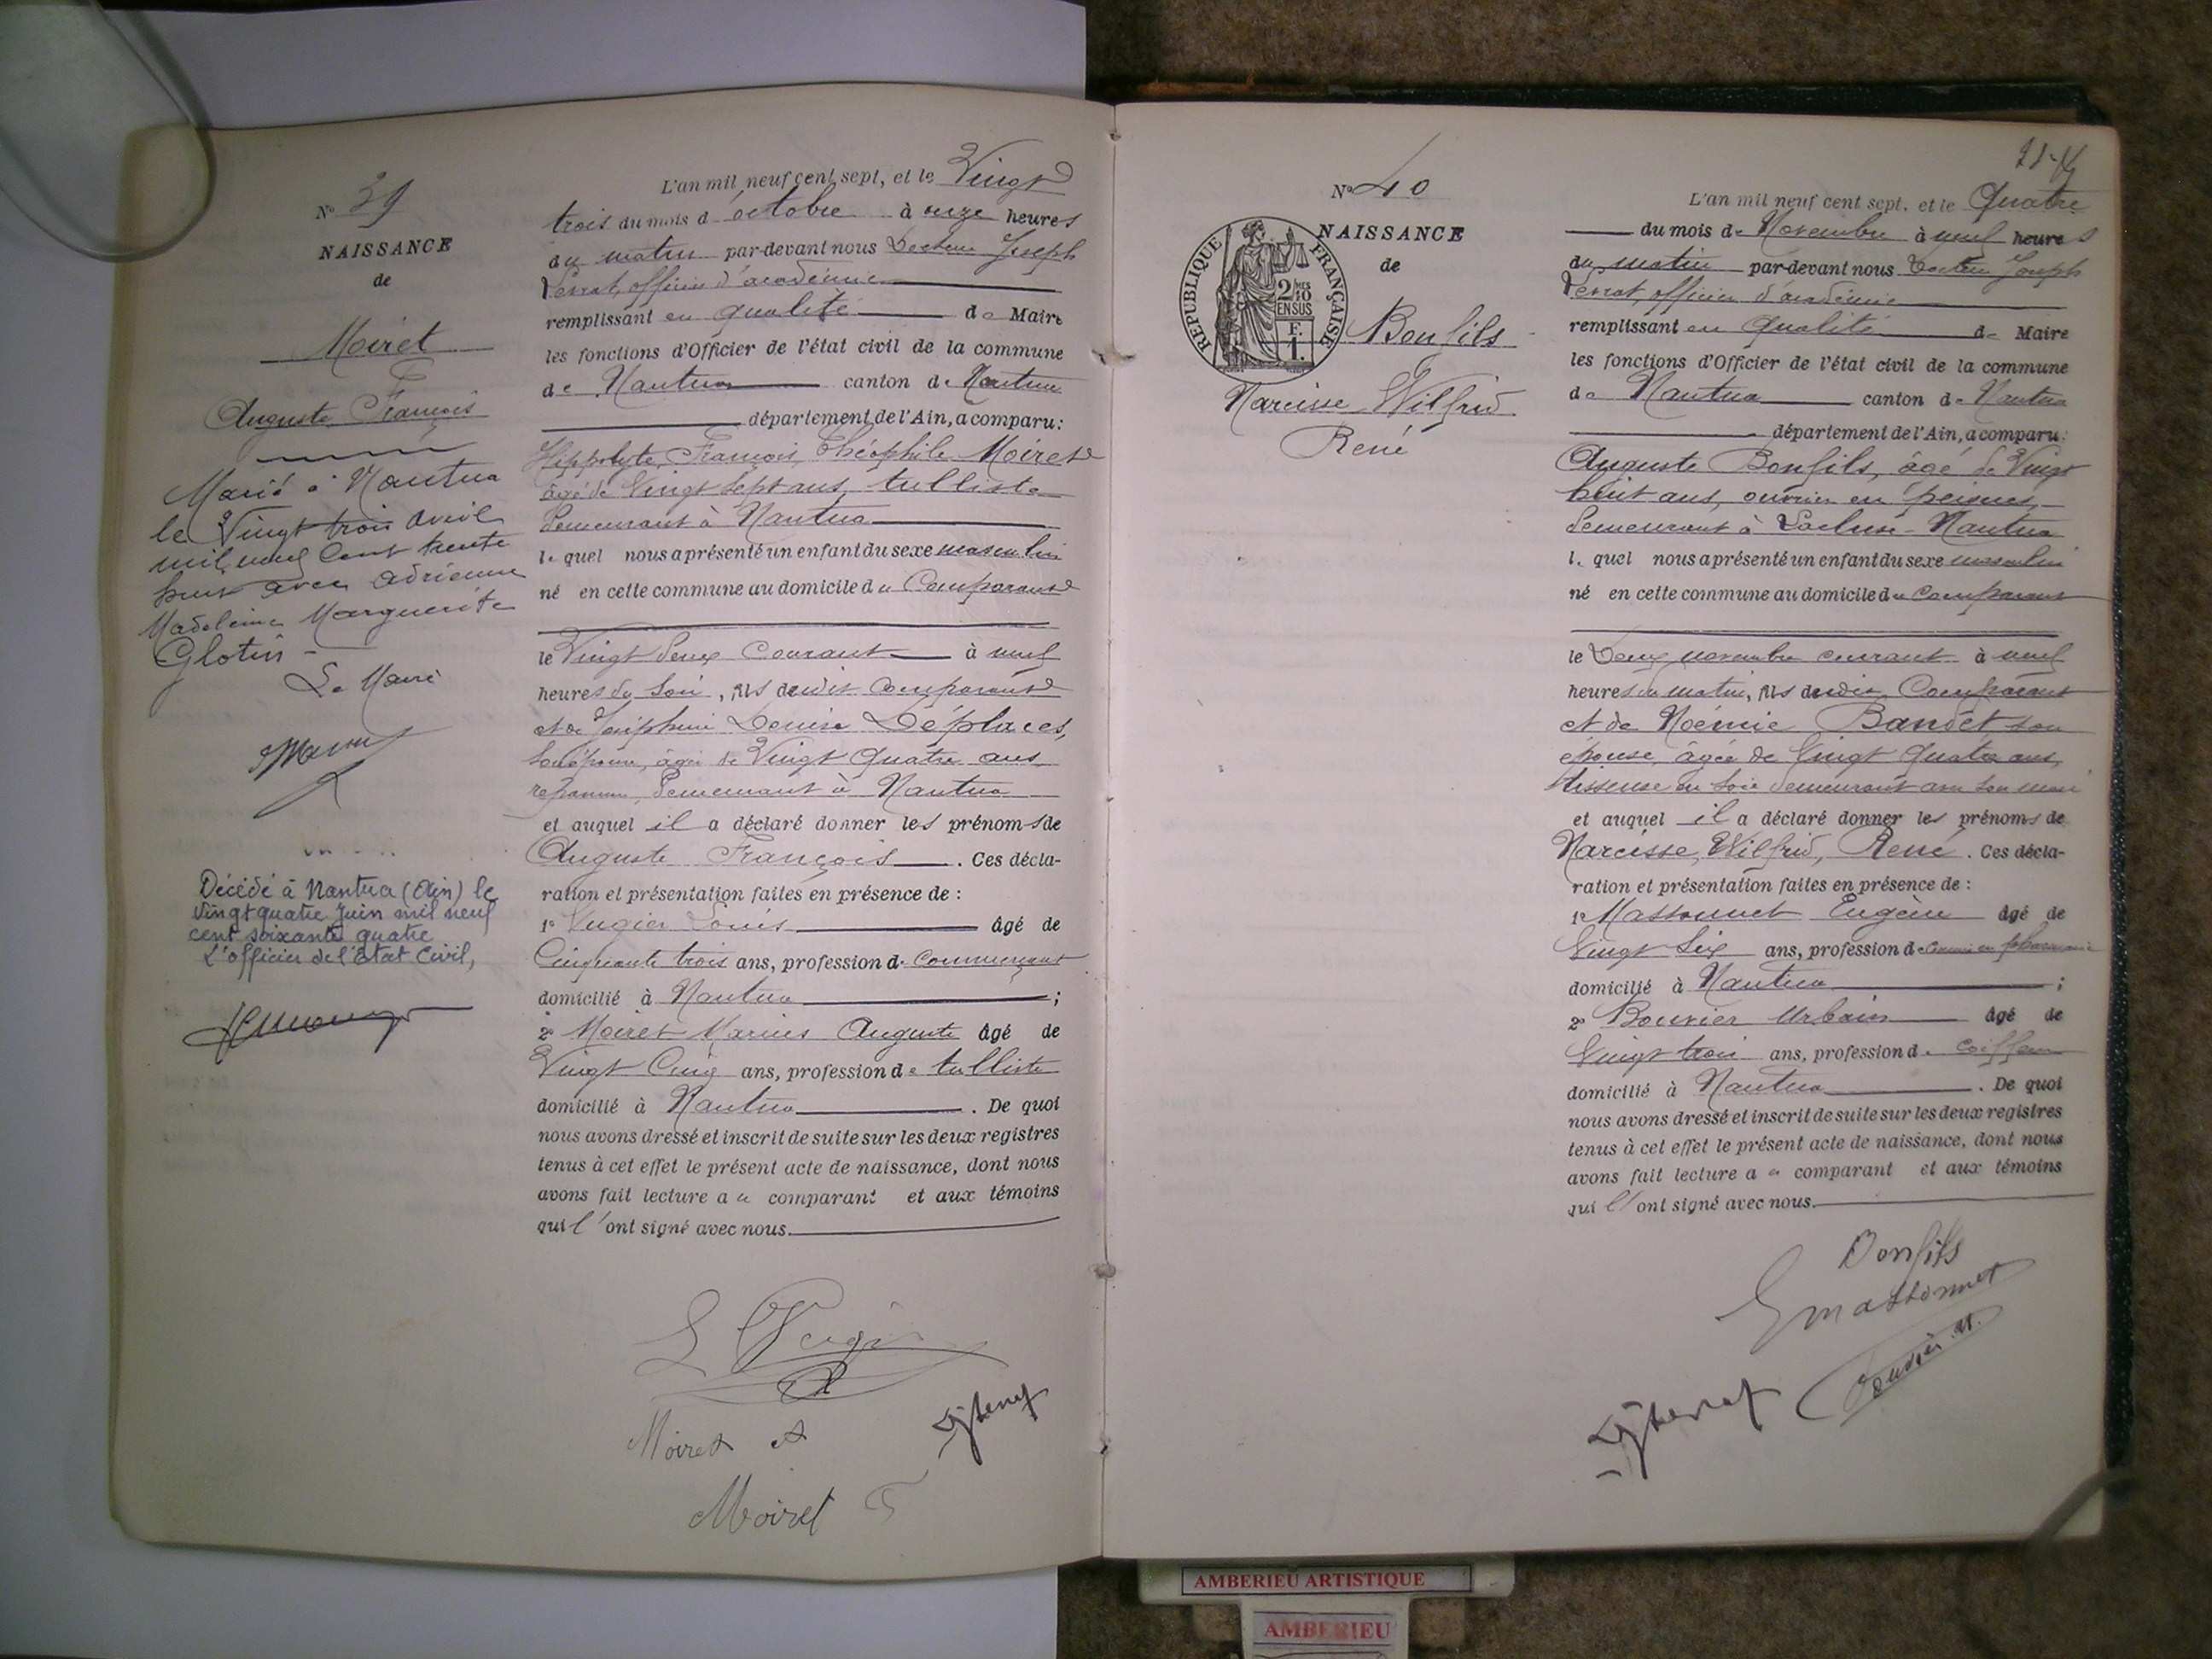 N° 39
NAISSANCE
de
Moiret
Auguste François
Marié à Nantua
le Vingt trois avril
mil neuf cent trente
huit avec Adrienne
Madeleine Marguerite
Glotin -
Le Maire
Décédé à Nantua (Ain) le
vingt quatre Juin mil neuf
cent soixante quatre
L'officier de l'Etat Civil,
L'an mil neuf cent sept, et le Vingt
trois du mois d octobre à onze heures
du matin par-devant nous Docteur Joseph
officier d'académie
remplissant en qualité de Maire
les fonctions d'Officier de l'état civil de la commune
de Nantua canton de Nantua
département de l'Ain, a comparu:
Hippolyte, François, Théophile Moiret
âgé de Vingt sept ans, tulliste
demeurant à Nantua
le quel nous a présenté un enfant du sexe masculin
né en cette commune au domicile du Comparant
le Vingt deux Courant à neuf
heures du soir, fils dudit Comparant
et de Joséphine Denise Déplaces,
son épouse, âgée de Vingt Quatre ans,
demeurant à Nantua
et auquel il a déclaré donner les prénoms de
Auguste François. Ces décla-
ration et présentation faites en présence de :
1° Vugier Louis âgé de
Cinquante trois ans, profession de Commerçant
domicilié à Nantua ;
2° Moiret Marius Auguste âgé de
Vingt Cinq ans, profession de tulliste
domicilié à Nantua. De quoi
nous avons dressé et inscrit de suite sur les deux registres
tenus à cet effet le présent acte de naissance, dont nous
avons fait lecture au comparant et aux témoins
qui l'ont signé avec nous.
Moiret A
Moiret F
N° 40
NAISSANCE
de
RÉPUBLIQUE FRANÇAISE
2/10 MES
EN SUS
F.
1.
Bonfils
Narcisse Wilfrid
René
L'an mil neuf cent sept, et le Quatre
du mois de Novembre à neuf heures
du matin par-devant nous Docteur Joseph
officier d'académie
remplissant en qualité de Maire
les fonctions d'Officier de l'état civil de la commune
de Nantua canton de Nantua
département de l'Ain, a comparu:
Auguste Bonfils, âgé de Vingt
huit ans, ouvrier en peignes,
demeurant à Lacluse - Nantua
le quel nous a présenté un enfant du sexe masculin
né en cette commune au domicile du Comparant
le Deux novembre courant à neuf
heures du matin, fils dudit Comparant
et de Noémie Bandet, son
épouse, âgée de Vingt Quatre ans,
tisseuse en soie demeurant avec son mari
et auquel il a déclaré donner les prénoms de
Narcisse, Wilfrid, René. Ces décla-
ration et présentation faites en présence de :
1° Massonnet Eugène âgé de
Vingt Six ans, profession de Commis en pharmacie
domicilié à Nantua ;
2° Bouvier Urbain âgé de
Vingt trois ans, profession de Coiffeur
domicilié à Nantua. De quoi
nous avons dressé et inscrit de suite sur les deux registres
tenus à cet effet le présent acte de naissance, dont nous
avons fait lecture au comparant et aux témoins
qui l'ont signé avec nous.
Bonfils
E Massonnet
Bouvier U.
AMBERIEU ARTISTIQUE
AMBERIEU